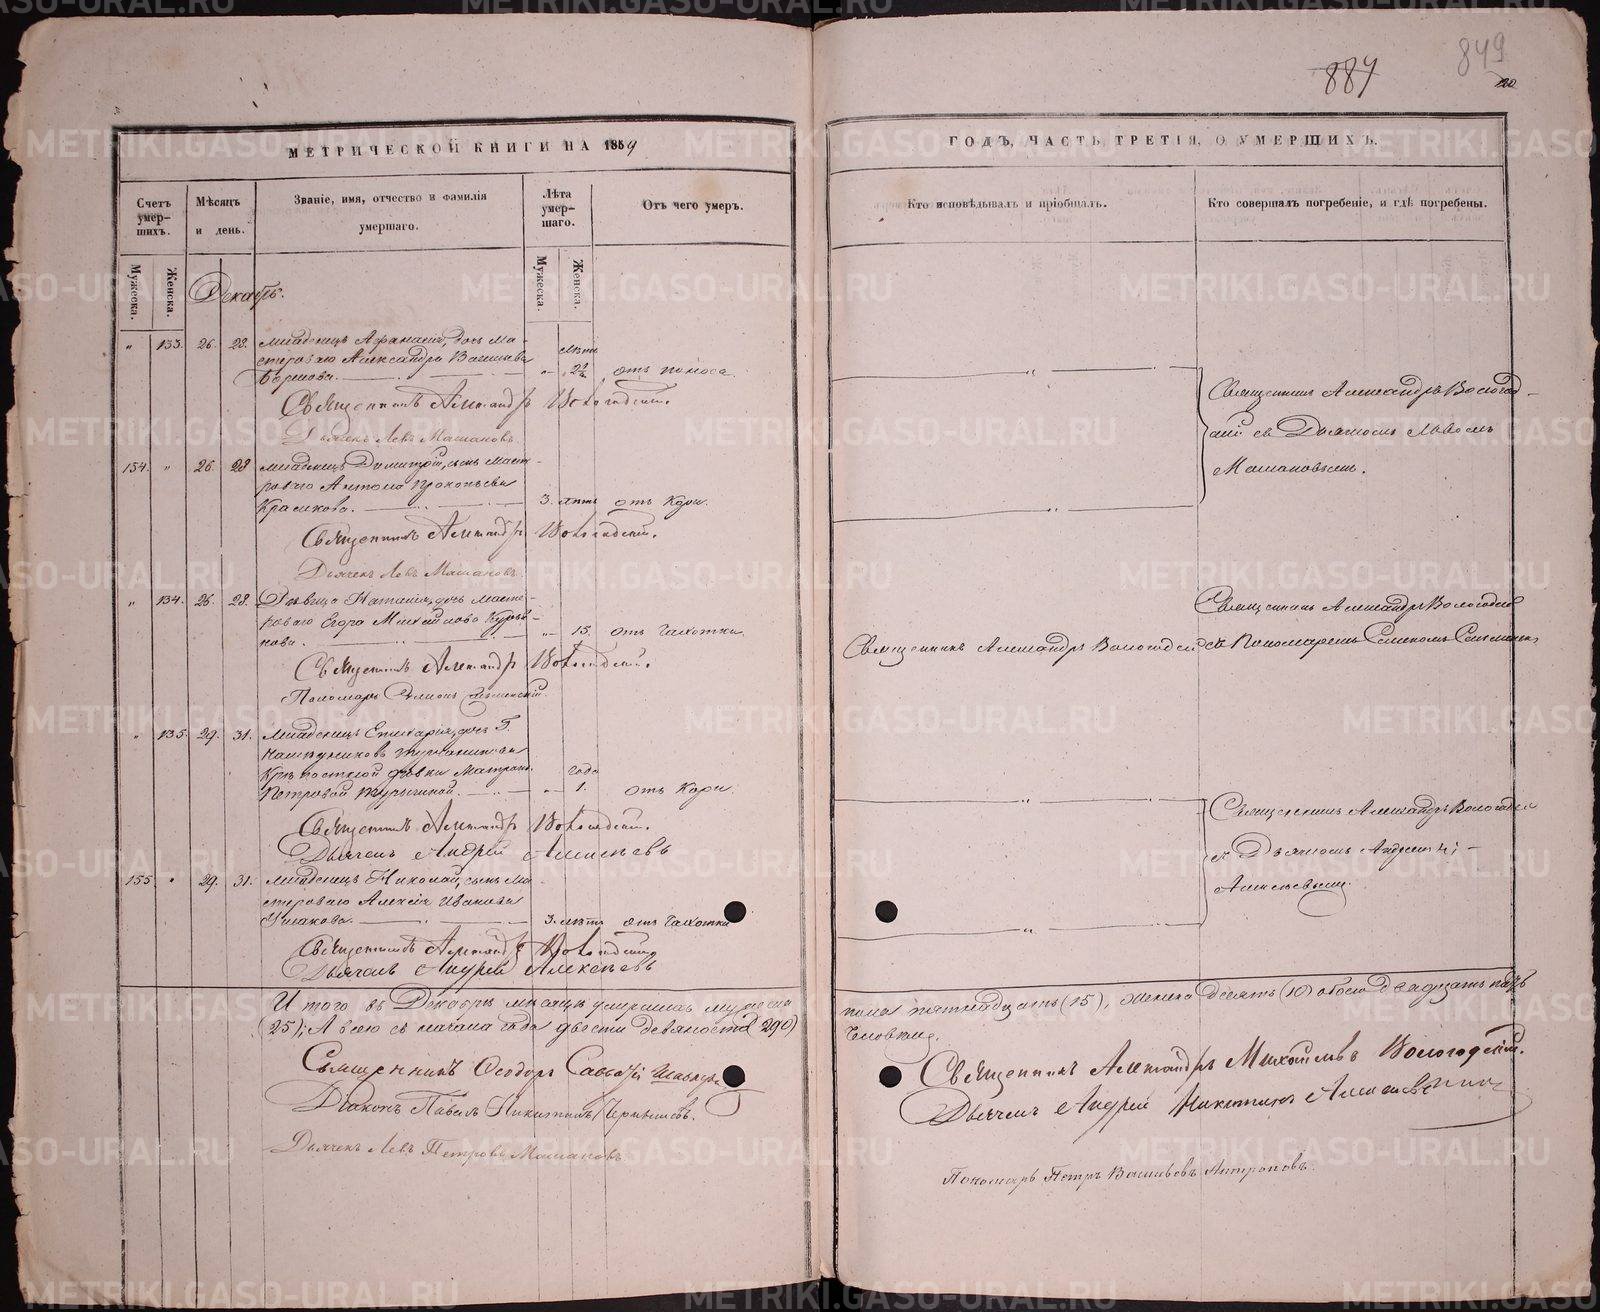 849
887
МЕТРИЧЕСКОЙ КНИГИ НА 1859
ГОДЪ, ЧАСТЬ ТРЕТІЯ, О УМЕРШИХЪ.
Счетъ умер-шихъ.
Мѣсяцъ и день.
Званіе, имя, отчество и фамилія умершаго.
Лѣта умер-шаго.
Отъ чего умеръ.
Кто исповѣдывалъ и пріобщалъ.
Кто совершалъ погребеніе, и гдѣ погребены.
Мужеска.
Женска.
Мужеска.
Женска.
Декабрь.
" 133. 26. 28. Младенецъ Афанасія, дочь ма-
стероваго Александра Васильева
отъ поноса.
Священникъ Александръ Вологодскій.
Дьячекъ Левъ Машановъ.
Священникъ Александръ Вологод-
скій съ Дьячкомъ Львомъ
Машановымъ.
154. " 26. 28 Младенецъ Димитрій, сынъ масте-
роваго Антона Прокопьева
Красикова. 3. лѣтъ отъ Кори.
Священникъ Александръ Вологодскій.
Дьячекъ Левъ Машановъ.
" 134. 26. 28. Дѣвица Наталія, дочь масте-
роваго Егора Михайлова
15. отъ чахотки.
Священникъ Александръ Вологодскій
Священникъ Александръ Вологодскій
съ Пономаремъ
Священникъ Александръ Вологодскій.
Пономарь
" 135. 29. 31. Младенецъ дочь Г.
Крѣпостной дѣвки Матроны
года
Петровой 1. отъ Кори.
Священникъ Александръ Вологодскій.
Дьячекъ Андрей Алексѣевъ
Священникъ Александръ Вологодскій
съ Дьячкомъ Андреемъ
Алексѣевымъ.
155. " 29. 31. Младенецъ Николай, сынъ ма-
стероваго Алексія Иванова
Ушакова. 3. лѣтъ отъ чахотки
Священникъ Александръ Вологодскій
Дьячекъ Андрей Алексѣевъ
Итого въ Декабрѣ мѣсяцѣ умершихъ мужеска
пола пятнадцать (15), женска десять (10) обоего двадцать пять
(25); А всего съ начала года двѣсти девяносто (290)
Человѣкъ.
Священникъ Ѳеодоръ
Діаконъ Павелъ Никитинъ
Дьячекъ Левъ Петровъ Машановъ
Священникъ Александръ Михайловъ Вологодскій.
Дьячекъ Андрей Никитинъ Алексѣевъ
Пономарь Петръ Васильевъ Антроповъ.
METRIKI.GASO-URAL.RU